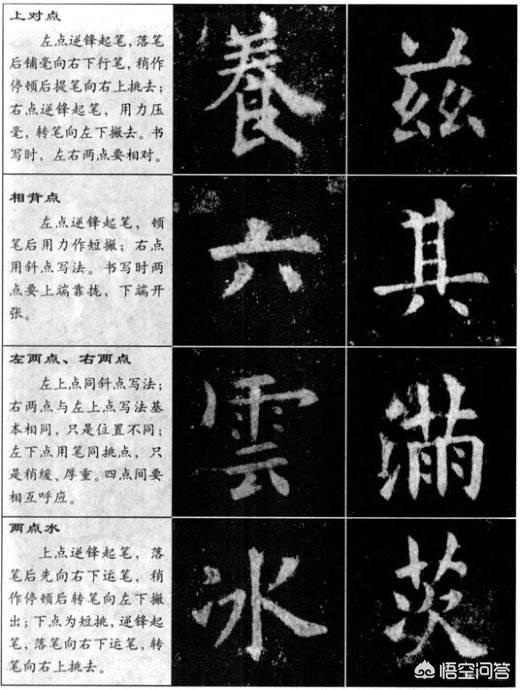 上对点
左点逆锋起笔，落笔
后铺毫向右下行笔，稍作
停顿后提笔向右上挑去；
右点逆锋起笔，用力压
毫，转笔向左下撇去。书
写时，左右两点要相对。
養 茲
相背点
左点逆锋起笔，顿
笔后用力作短撇；右点
用斜点写法。书写时两
点要上端靠拢，下端开
张。
六 其
左两点、右两点
左上点同斜点写法；
右两点与左上点写法基
本相同，只是位置不同；
左下点用笔同挑点，只
是稍缓、厚重。四点间要
相互呼应。
雲 满
两点水
上点逆锋起笔，落
笔后先向右下运笔，稍
作停顿后转笔向左下撇
出；下点为短挑，逆锋起
笔，落笔向右下运笔，转
笔向右上挑去。
冰 茨
悟空问答